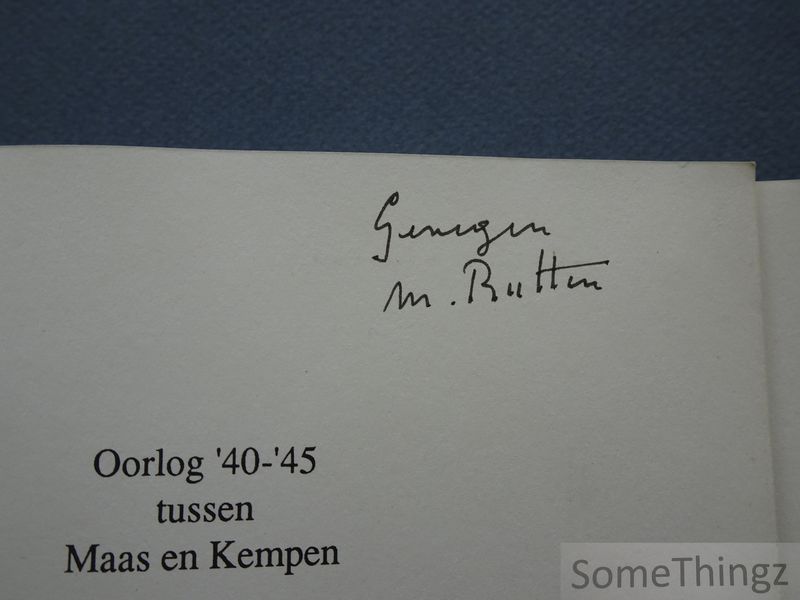 Genegen
M. Rutten
Oorlog '40-'45
tussen
Maas en Kempen
SomeThingz